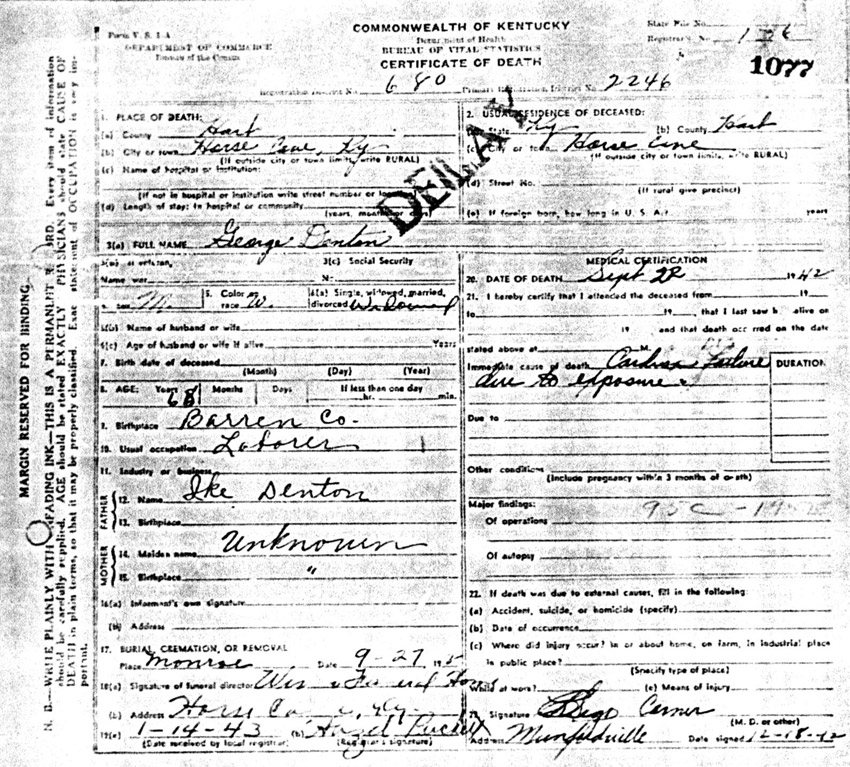 Form V. S. 1-A
DEPARTMENT OF COMMERCE
Bureau of the Census
COMMONWEALTH OF KENTUCKY
Department of Health
BUREAU OF VITAL STATISTICS
CERTIFICATE OF DEATH
State File No.
Registrar's No.
1077
Registration District No. 680 Primary Registration District No. 2246
DELAY
MARGIN RESERVED FOR BINDING.
N. B.—WRITE PLAINLY WITH UNFADING INK—THIS IS A PERMANENT RECORD. Every item of information
should be carefully supplied. AGE should be stated EXACTLY. PHYSICIANS should state CAUSE OF
DEATH in plain terms, so that it may be properly classified. Exact statement of OCCUPATION is very im-
portant.
1. PLACE OF DEATH:
(a) County Hart
(b) City or town Horse Cave, Ky
(If outside city or town limits, write RURAL)
(c) Name of hospital or institution:
(If not in hospital or institution write street number or location)
(d) Length of stay: In hospital or community
(years, months or days)
2. USUAL RESIDENCE OF DECEASED:
State Ky (b) County Hart
(c) City or town Horse Cave
(If outside city or town limits, write RURAL)
(d) Street No.
(If rural give precinct)
(e) If foreign born, how long in U. S. A.? years
3(a) FULL NAME George Denton
3(b) If veteran, 3(c) Social Security
Name war No.
4. Sex M. 5. Color or race W. 6(a) Single, widowed, married, divorced Widowed
6(b) Name of husband or wife
6(c) Age of husband or wife if alive Years
7. Birth date of deceased
(Month) (Day) (Year)
8. AGE: Years 68 Months Days If less than one day hr. min.
9. Birthplace Barren Co.
10. Usual occupation Laborer
11. Industry or business
FATHER
12. Name Ike Denton
13. Birthplace
MOTHER
14. Maiden name Unknown
15. Birthplace "
16(a) Informant's own signature
(b) Address
17. BURIAL, CREMATION, OR REMOVAL
Place Monroe Date 9-27 19
18(a) Signature of funeral director Funeral Home
(b) Address Horse Cave, Ky.
19(a) 1-14-43 (b) Hazel Puckett
(Date received by local registrar) (Registrar's signature)
MEDICAL CERTIFICATION
20. DATE OF DEATH Sept 22 1942
21. I hereby certify that I attended the deceased from 19
to 19 , that I last saw h alive on
19 , and that death occurred on the date
stated above at M.
Immediate cause of death Cardiac Failure
due to exposure.
DURATION
Due to
Other conditions
(Include pregnancy within 3 months of death)
Major findings:
Of operations
Of autopsy
22. If death was due to external causes, fill in the following:
(a) Accident, suicide, or homicide (specify)
(b) Date of occurrence
(c) Where did injury occur? In or about home, on farm, in industrial place
in public place?
(Specify type of place)
While at work? (e) Means of injury
23. Signature Coroner
(M. D. or other)
Address Munfordville Date signed 12-18-42